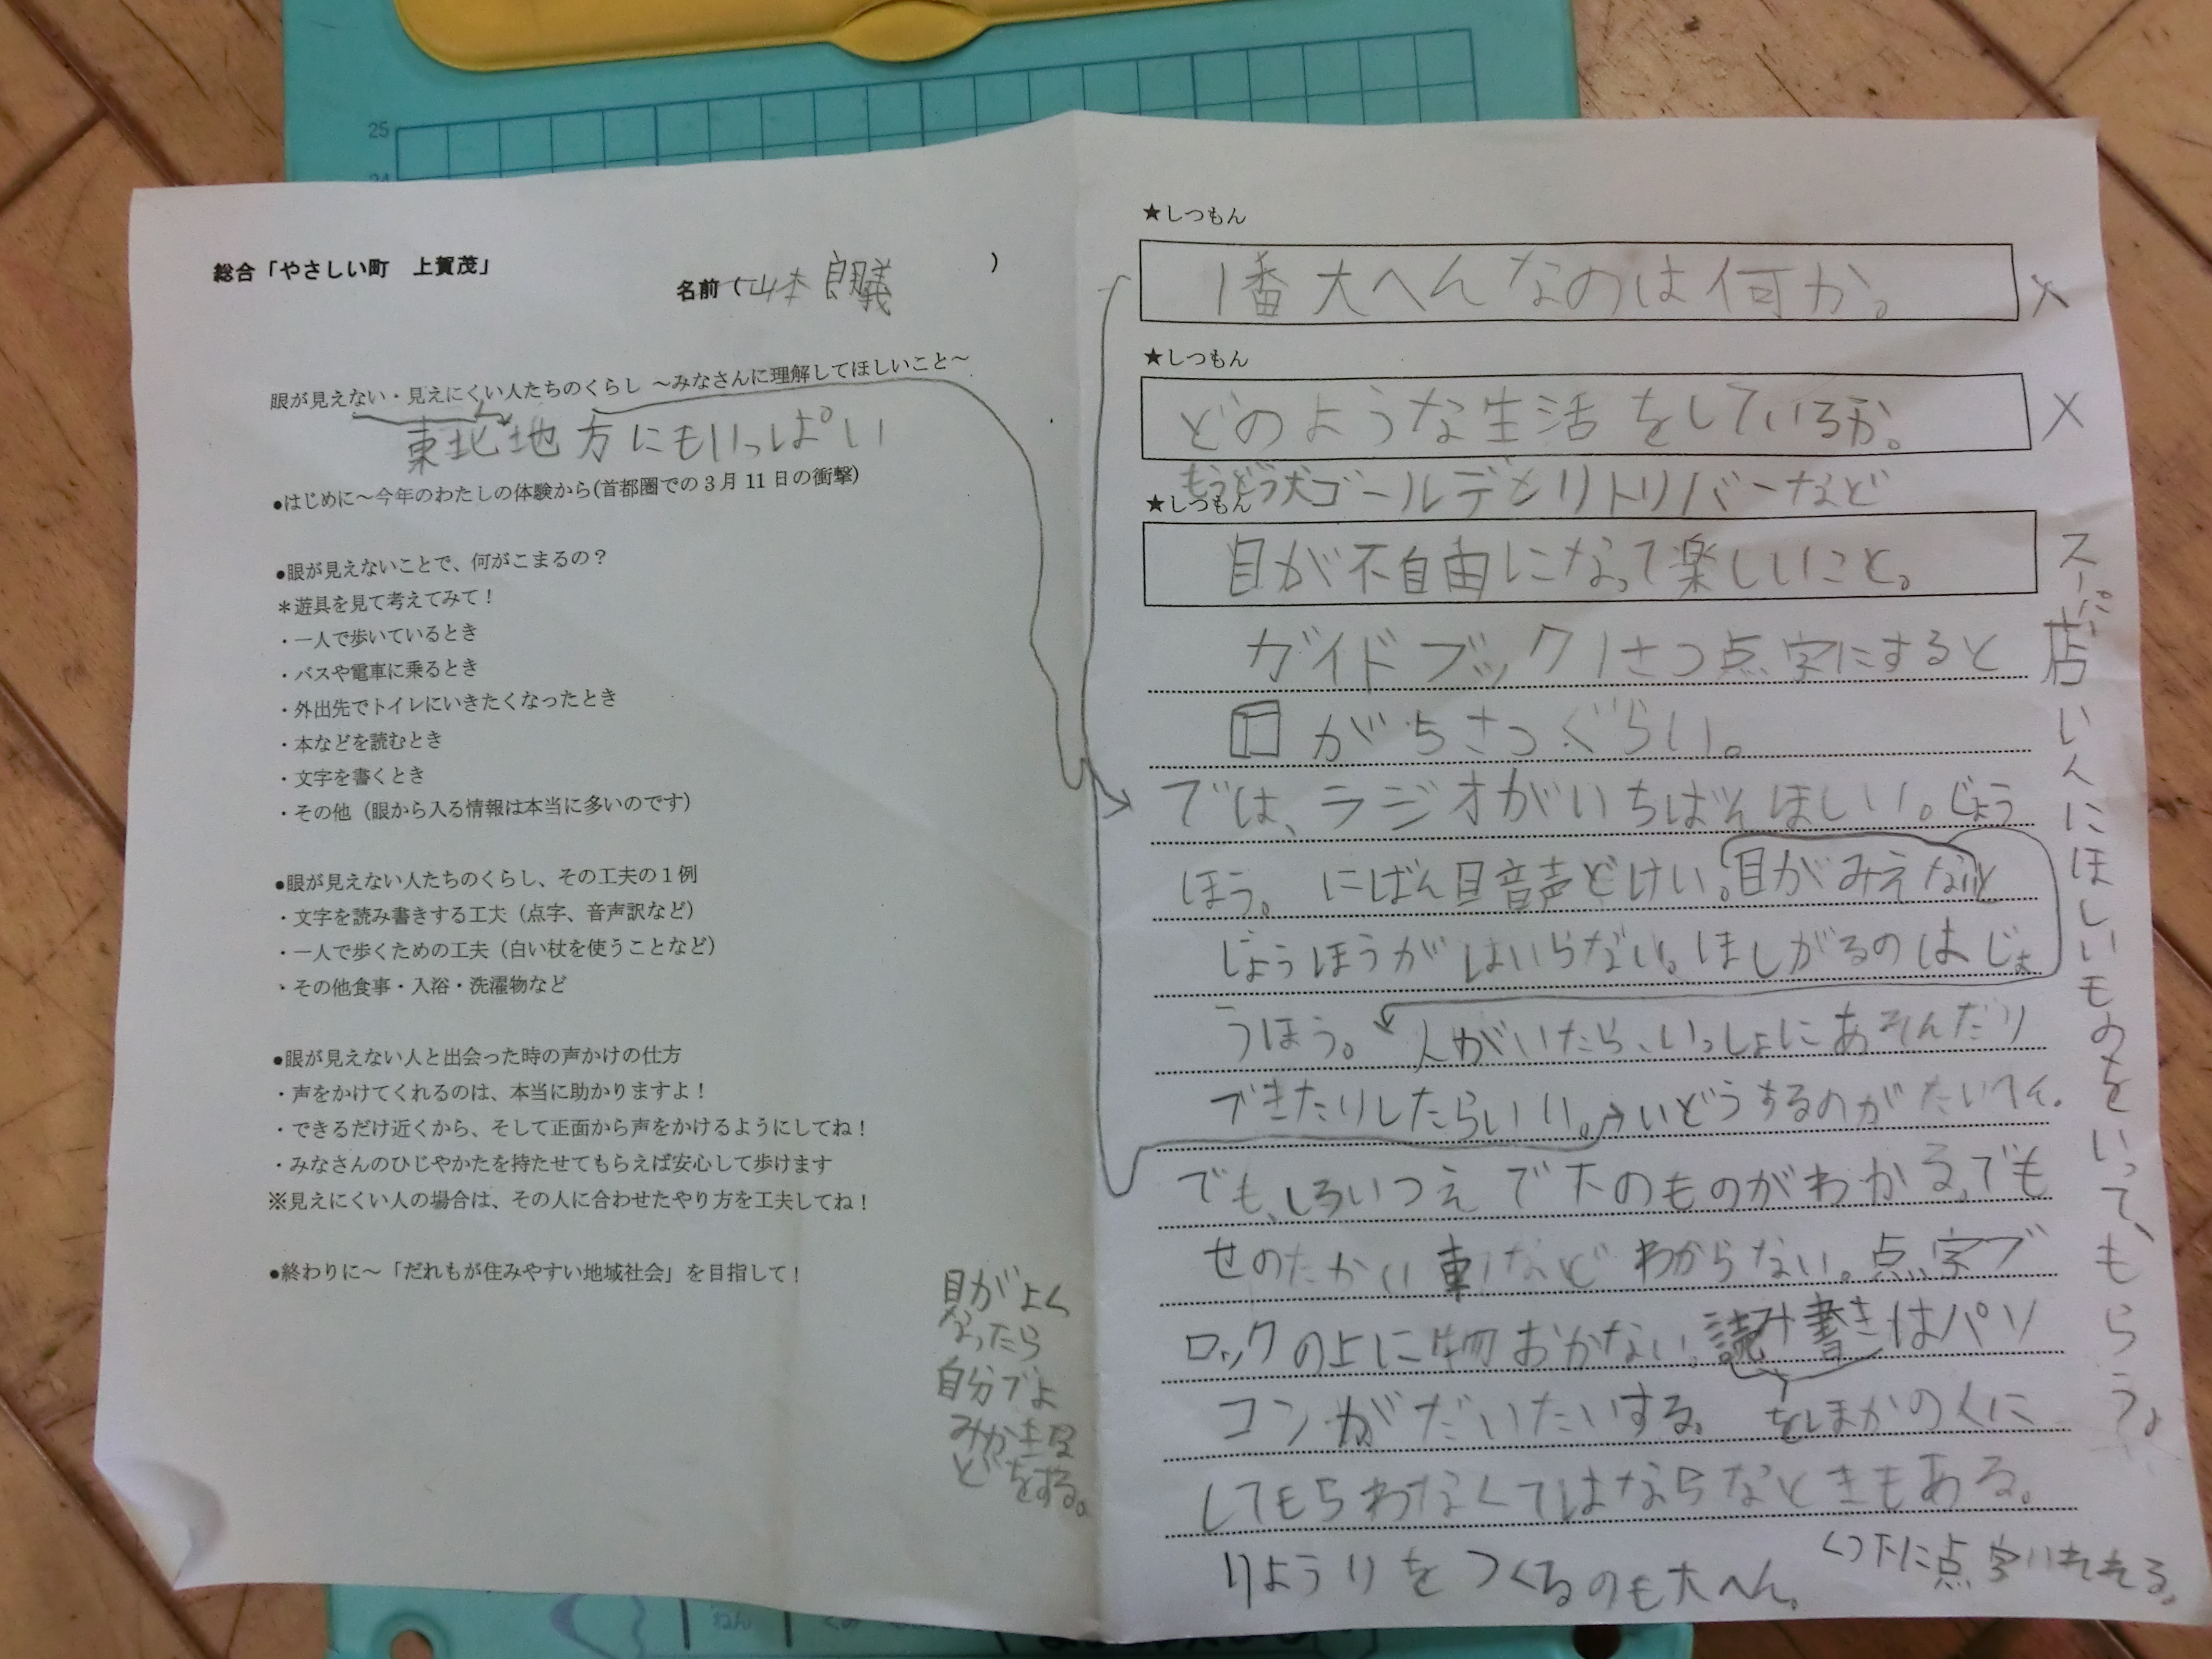 25
24
総合「やさしい町 上賀茂」
名前（山本 良議 ）
眼が見えない・見えにくい人たちのくらし ～みなさんに理解してほしいこと～
東北地方にもいっぱい
●はじめに～今年のわたしの体験から(首都圏での3月11日の衝撃)
●眼が見えないことで、何がこまるの？
＊遊具を見て考えてみて！
・一人で歩いているとき
・バスや電車に乗るとき
・外出先でトイレにいきたくなったとき
・本などを読むとき
・文字を書くとき
・その他（眼から入る情報は本当に多いのです）
●眼が見えない人たちのくらし、その工夫の１例
・文字を読み書きする工夫（点字、音声訳など）
・一人で歩くための工夫（白い杖を使うことなど）
・その他食事・入浴・洗濯物など
●眼が見えない人と出会った時の声かけの仕方
・声をかけてくれるのは、本当に助かりますよ！
・できるだけ近くから、そして正面から声をかけるようにしてね！
・みなさんのひじやかたを持たせてもらえば安心して歩けます
※見えにくい人の場合は、その人に合わせたやり方を工夫してね！
●終わりに～「だれもが住みやすい地域社会」を目指して！
目がよく
なったら
自分でよ
みかきな
どをする。
★しつもん
1番大へんなのは何か。 ×
★しつもん
どのような生活をしているか。 ×
もうどう犬ゴールデンリトリバーなど
★しつもん
目が不自由になって楽しいこと。
ガイドブック1さつ点字にすると
がちさつぐらい。
では、ラジオがいちばんほしい。じょう
ほう。 にばん目音声どけい。目がみえないと
じょうほうがはいらない。ほしがるのはじょ
うほう。 人がいたら、いっしょにあそんだり
できたりしたらいい。→いどうするのがたいへん。
でも、しろいつえで下のものがわかる。でも
せのたかい車などわからない。点字ブ
ロックの上に物おかない。読み書きはパソ
コンがだいたいする。 をほかのくに
してもらわなくてはならなときもある。
りょうりをつくるのも大へん。
くつ下に点字いれれる。
スーパー店いんにほしいものをいって、もらう。
ねん